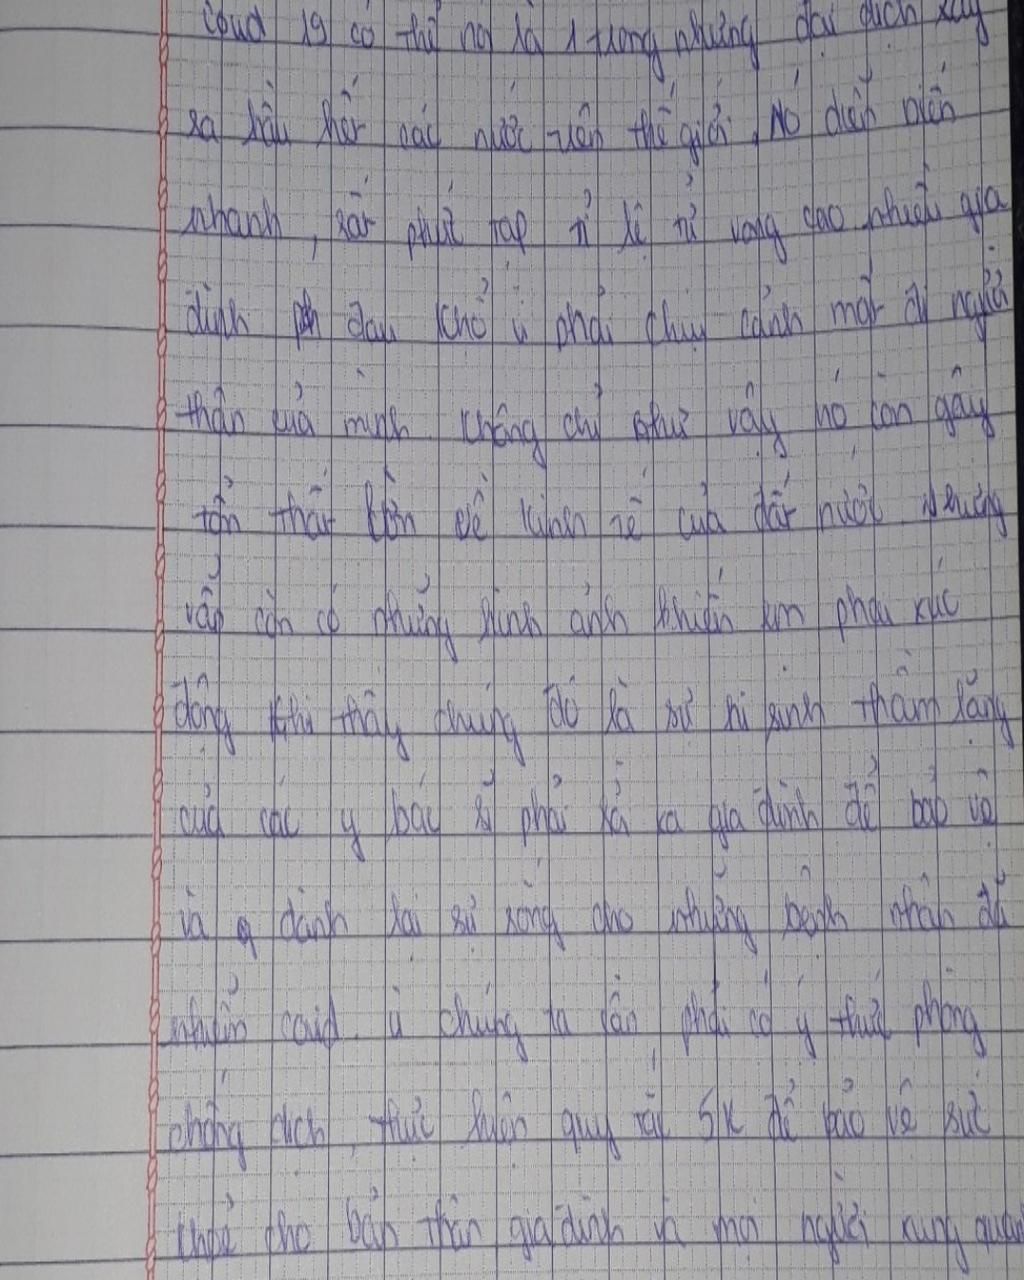 Covid 19 có thể nói là 1 trong những đại dịch xảy
ra hầu hết các nước trên thế giới. Nó diễn biến
nhanh, rất phức tạp tỉ lệ tử vong cao nhiều gia
đình đau khổ vì phải chịu cảnh mất đi người
thân của mình. Không chỉ như vậy nó còn gây
tổn thất lớn về kinh tế của đất nước. Nhưng
vẫn còn có những hình ảnh khiến em phải xúc
động khi thấy chúng đó là sự hi sinh thầm lặng
của các y bác sĩ phải xả ra gia đình để bảo vệ
và dành lại sự sống cho những bệnh nhân đã
nhiễm covid. Vì chúng ta cần phải có ý thức phòng
chống dịch, thực luện quy tắc 5K để bảo vệ sức
khoẻ cho bản thân gia đình và mọi người xung quan